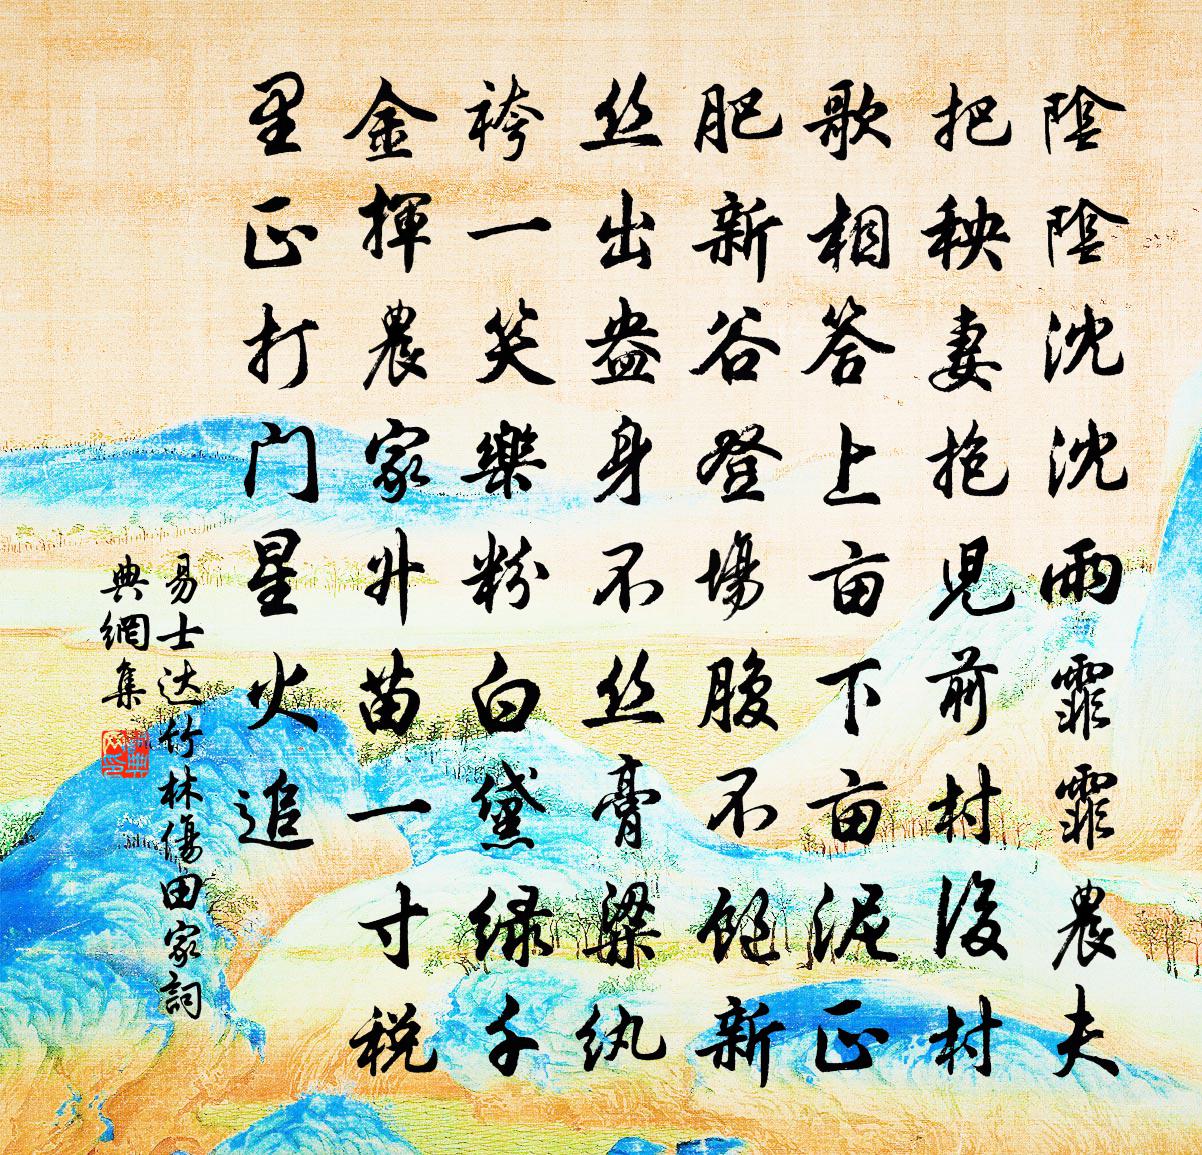 陰陰沈沈雨霏霏農夫
把秧妻抱児前村後村
歌相答上亩下亩泥正
肥新谷登場腹不饱新
丝出盎身不丝膏粱纨
袴一笑樂粉白黛绿千
金揮農家升苗一寸税
里正打门星火追
易士达竹林傷田家詞
典網集